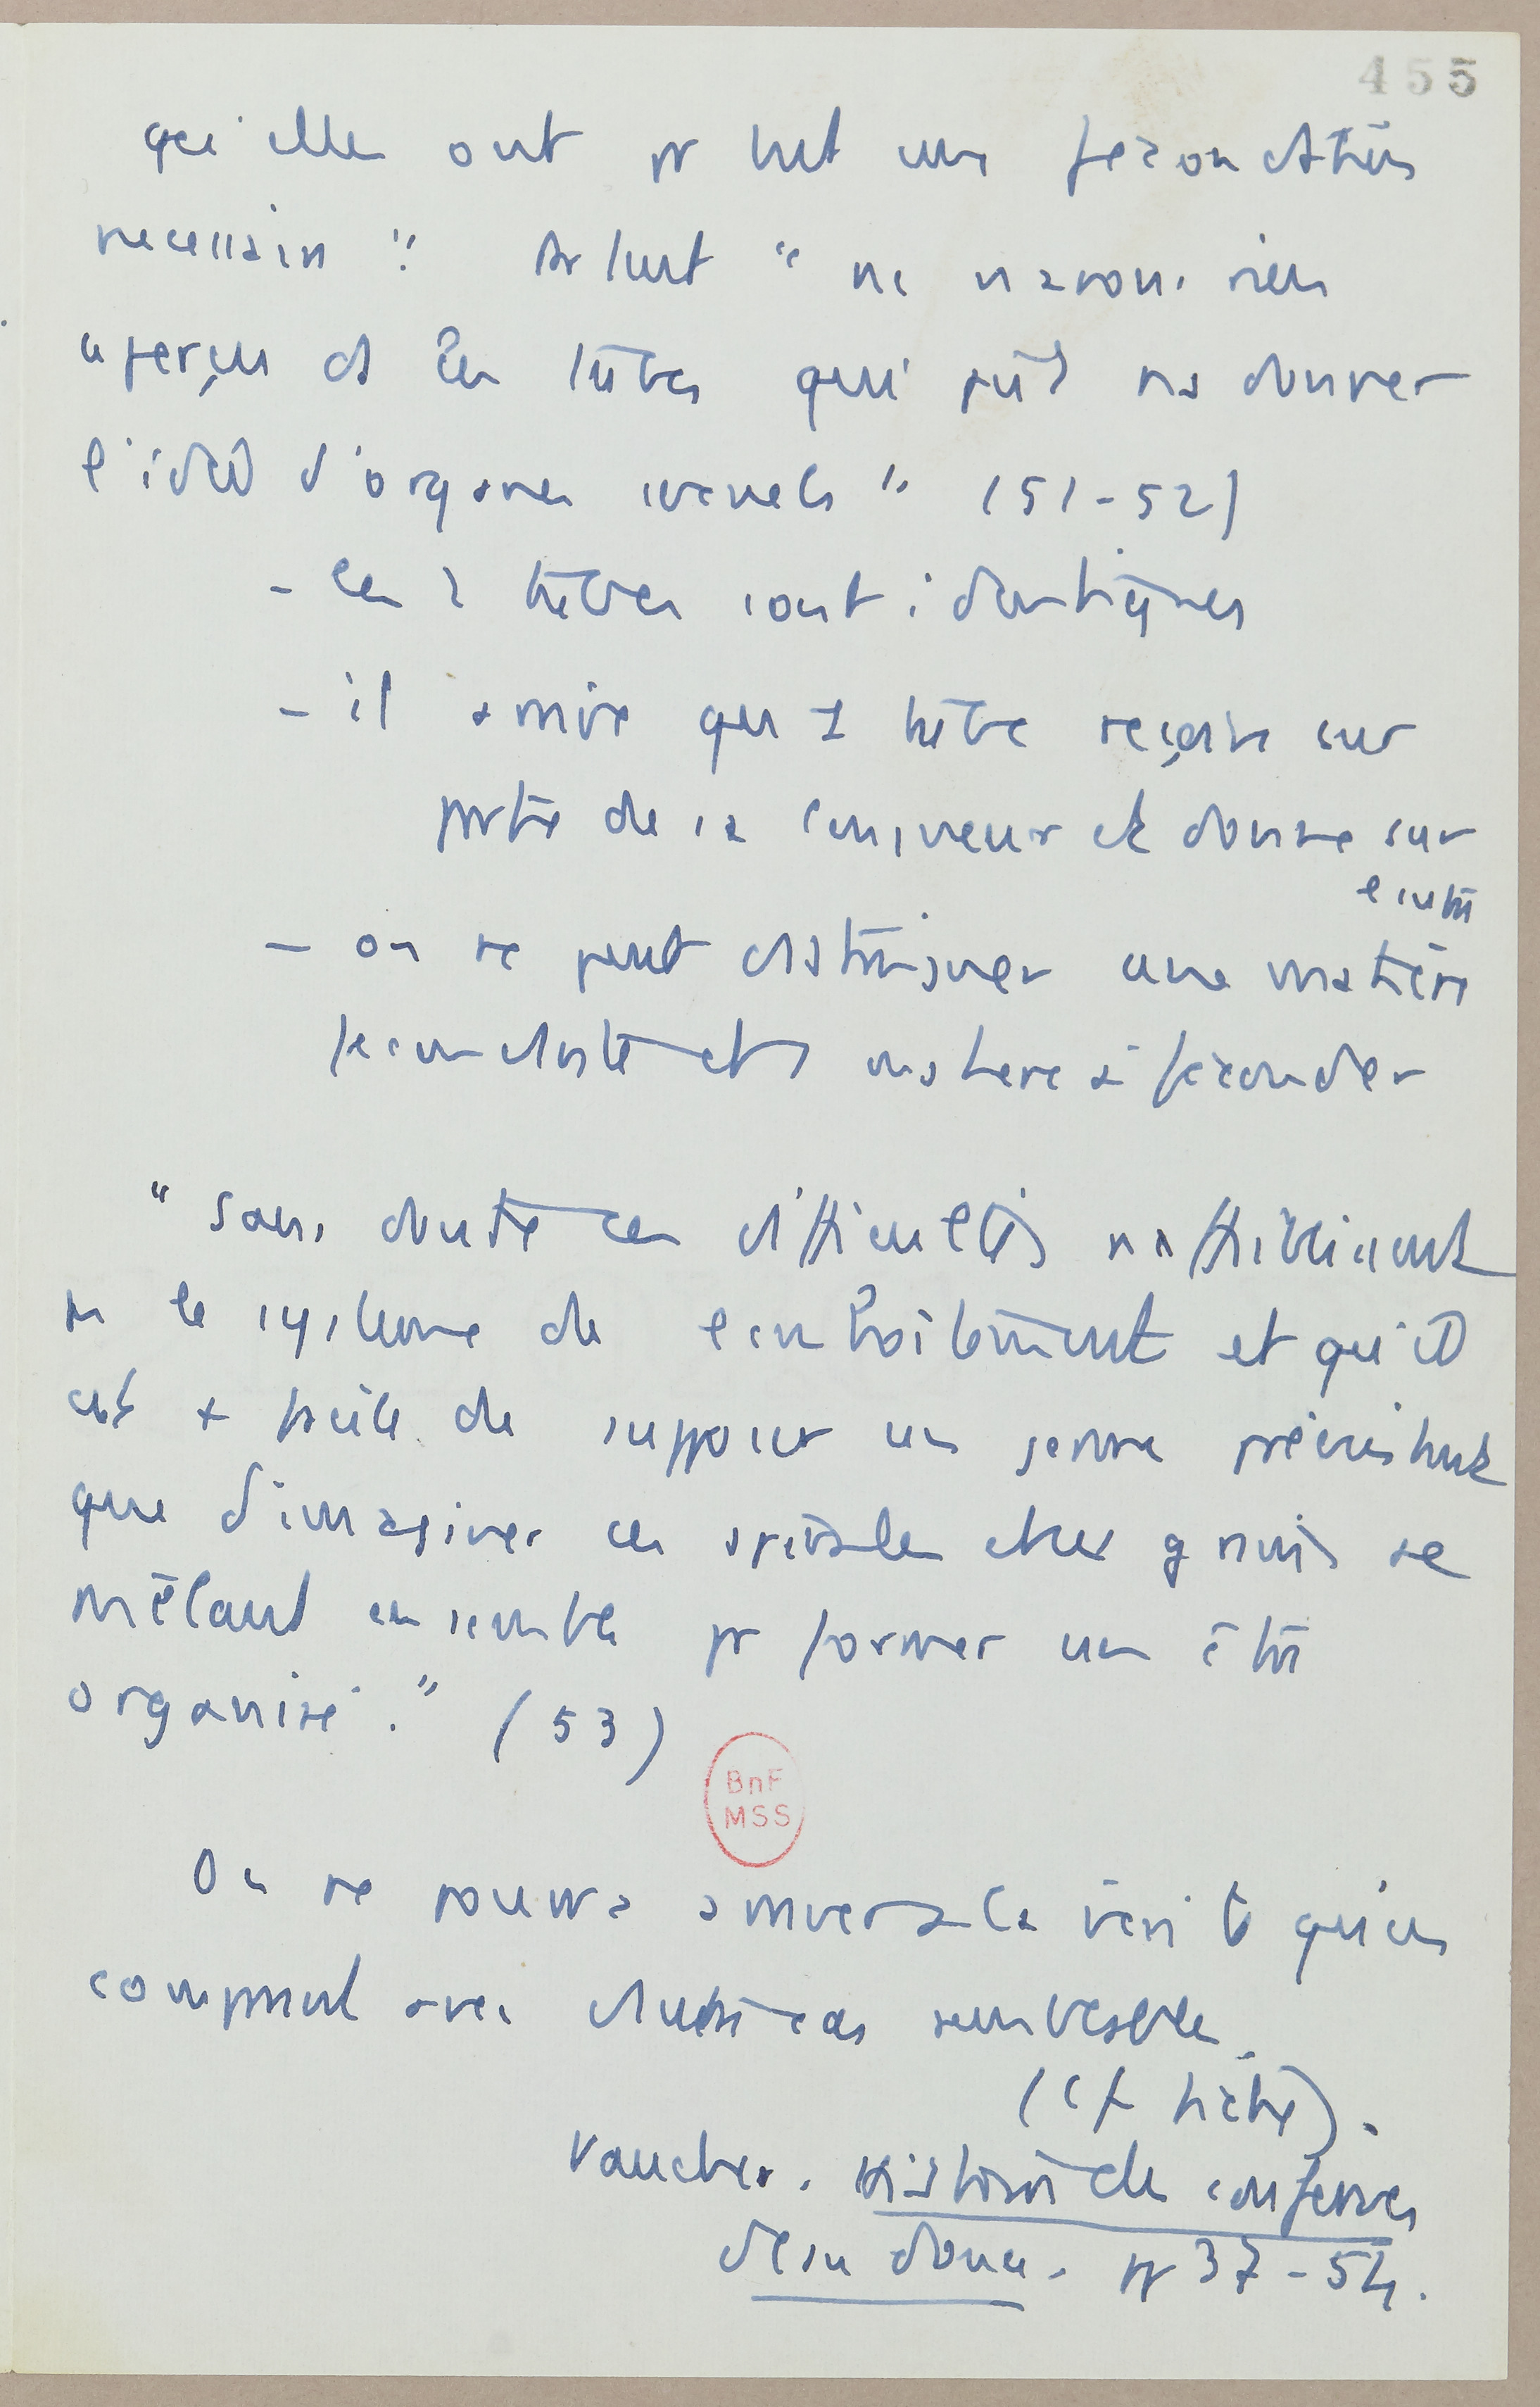 455
qu'elles ont pr but une fécondation
nécessaire". Surtout "ne n avons rien
aperçu ds les tubes qui pût ns donner
l'idée d'organes sexuels" (51-52)
- les 2 tubes sont identiques
- il arrive que 1 tube reçoive sur
partie de sa longueur et donne sur
l'autre
- on ne peut distinguer une matière
fécondante et 1 matière à féconder
"Sans doute ces difficultés n'affaiblissent
pas le système de l'emboîtement et qu'il
est + facile de supposer un germe préexistant
que d'imaginer ces spirales et les grains se
mêlant ensemble pr former un être
organisé." (53)
On ne pourra arriver à la vérité qu'en
comparant avec d'autres cas semblables.
(cf trémelle).
Vaucher. Histoire des conferves
d'eau douce. pp 37-54.
BnF
MSS